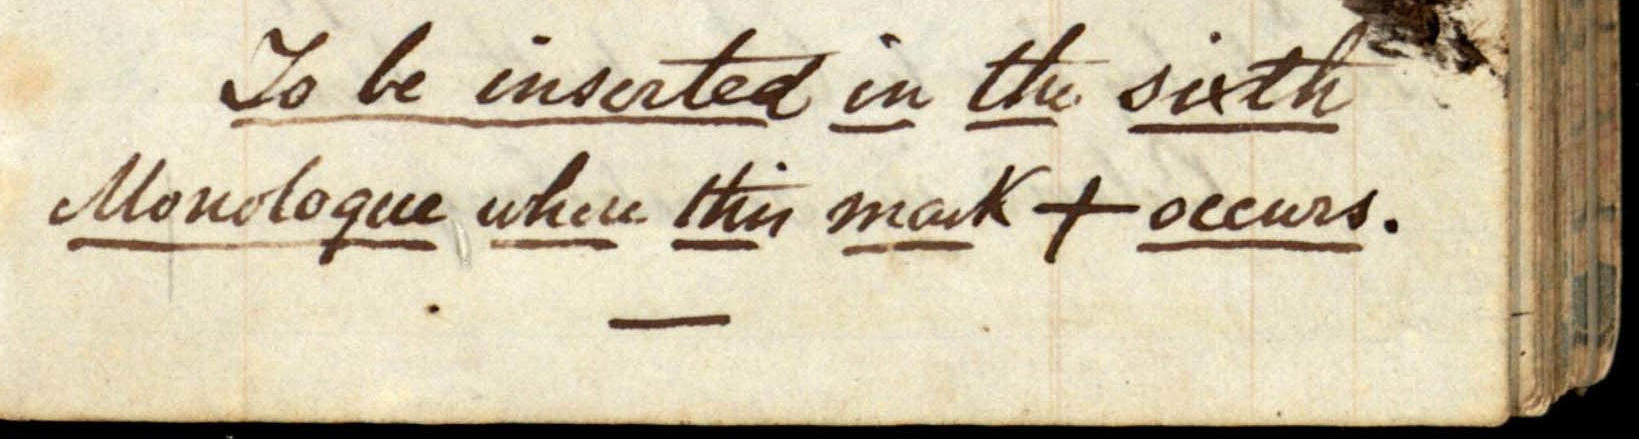 To be inserted in the sixth
Monologue where this mark + occurs.